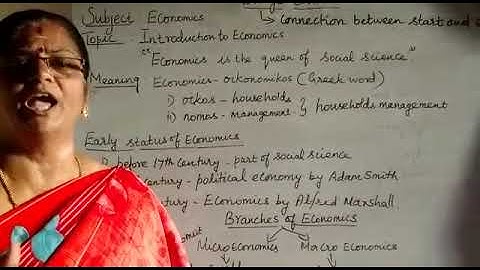 Subject Economics
connection between start and
Topic - Introduction to Economics
"Economics is the queen of social science"
Meaning Economics - oikonomikos (Greek word)
i) oikos - households
ii) nomos - management } households menagement
Early status of Economics
before 17th Century - part of social science
Century - political economy by Adam Smith
Century - Economics by Alfred Marshall.
Branches of Economics
Micro Economics Macro Economics